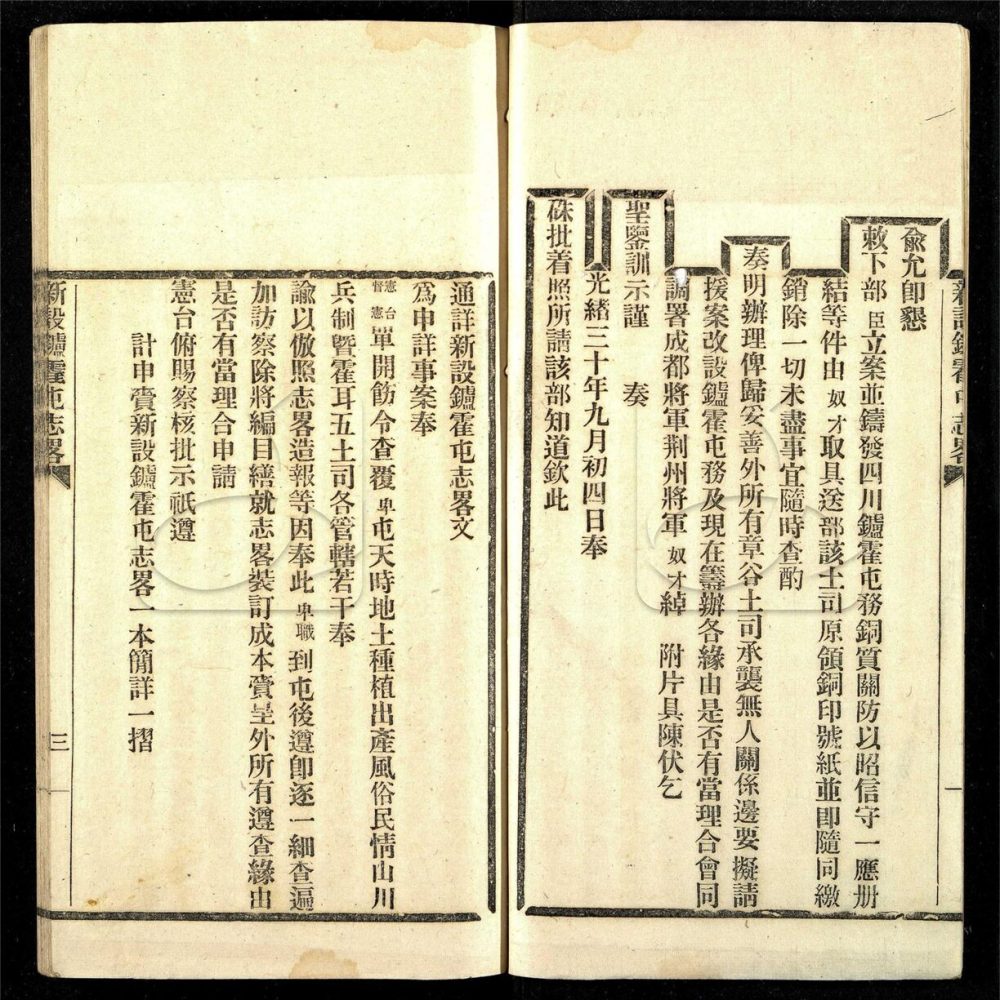 新設鑪霍屯志畧
俞允卽懇
敕下部臣立案並鑄發四川鑪霍屯務銅質關防以昭信守一應册
結等件由奴才取具送部該土司原領銅印號紙並卽隨同繳
銷除一切未盡事宜隨時查酌
奏明辦理俾歸妥善外所有章谷土司承襲無人關係邊要擬請
援案改設鑪霍屯務及現在籌辦各緣由是否有當理合會同
調署成都將軍荆州將軍奴才綽 附片具陳伏乞
聖鑒訓示謹 奏
光緒三十年九月初四日奉
硃批着照所請該部知道欽此
通詳新設鑪霍屯志畧文
爲申詳事案奉
憲台督憲單開飭令查覆卑屯天時地土種植出產風俗民情山川
兵制曁霍耳五土司各管轄若干奉
諭以倣照志畧造報等因奉此卑職到屯後遵卽逐一細查遍
加訪察除將編目繕就志畧裝訂成本賫呈外所有遵查緣由
是否有當理合申請
憲台俯賜察核批示祇遵
計申賫新設鑪霍屯志畧一本簡詳一摺
新設鑪霍屯志畧
三